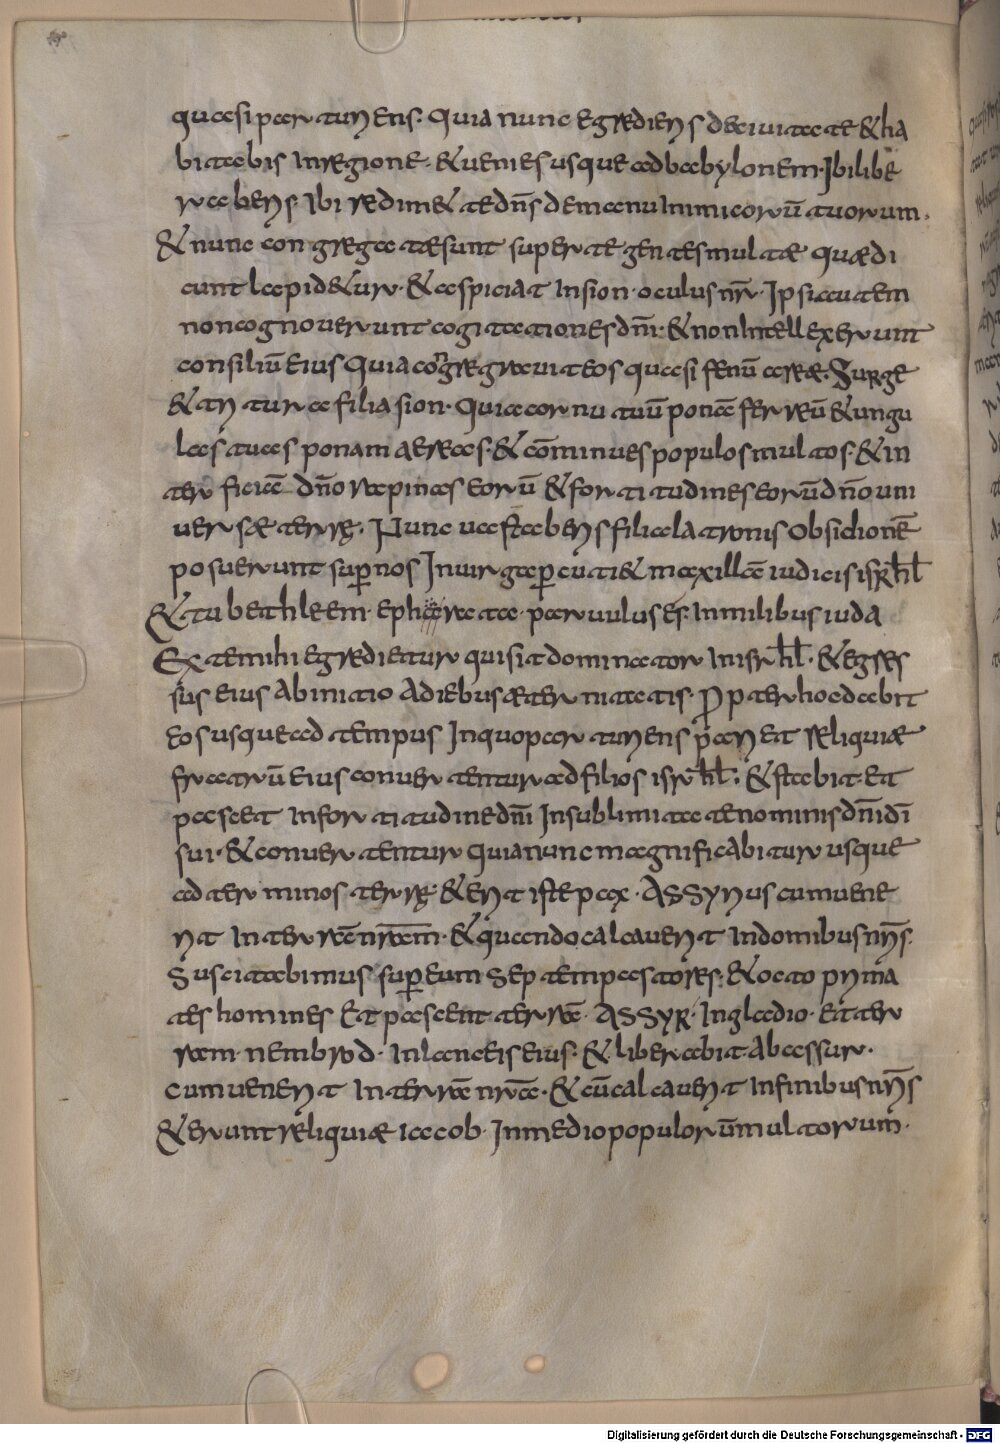 quasi parturiens. Quia nunc egredieris deciuitate &ha
bitabis Inregione. &uenies usque adbabylonem. Ibi libe
raberis. Ibi redim& te dn̄s demanu Inimicorū tuorum.
&nunc congregatae sunt super te gentes multae quae di
cunt lapid&ur. &aspiciat Insion. oculus nr̄. Ipsi autem
non cognouerunt cogitationes dn̄i. &non Intellexerunt
consiliū eius Quia cōgregauit eos quasi fenū areae. Surge
& tritura filia sion. Quia cornu tuū ponā ferreū &ungu
las tuas ponam aereas. & cōminues populos multos. & in
terficiā dn̄o rapinas eorū &fortitudines eorū dn̄o uni
uersae terrę. Nunc uastaberis filia latronis Obsidionē
posuerunt sup̄ nos Inuirga p̄cutient maxillā iudicis isrhl̄
&tu bethleem. ephrata. paruulus es. Inmilibus iuda
Ex te mihi egredietur qui sit dominator Inisrhl̄. &egres
sus eius Abinitio Adiebus aeternitatis. Propter hoc dabit
eos usque ad tempus Inquo parturiens pariet reliquiae
fratrū eius conuertentur ad filios isrhl̄. &stabit. Et
pascet Infortitudine dn̄i Insublimitate nominis dn̄i dī
sui. &conuertentur quia nunc magnificabitur usque
ad terminos terrę &erit iste pax. Assyrius cum uene
rit In terrā nr̄am. &quando calcauerit Indomibus nr̄is.
Suscitabimus sup̄ eum septem pastores. &octo prima
tes homines Et pascent. terrā. Assyr. Ingladio. Et ter
ram. nembrod. Inlanceis eius. &liberabit Abassur.
cum uenerit In terrā nr̄ā. &cū calcauerit Infinibus nr̄is
&erunt reliquiae Iacob. Inmedio populorū multorum.
Digitalisierung gefördert durch die Deutsche Forschungsgemeinschaft - DFG